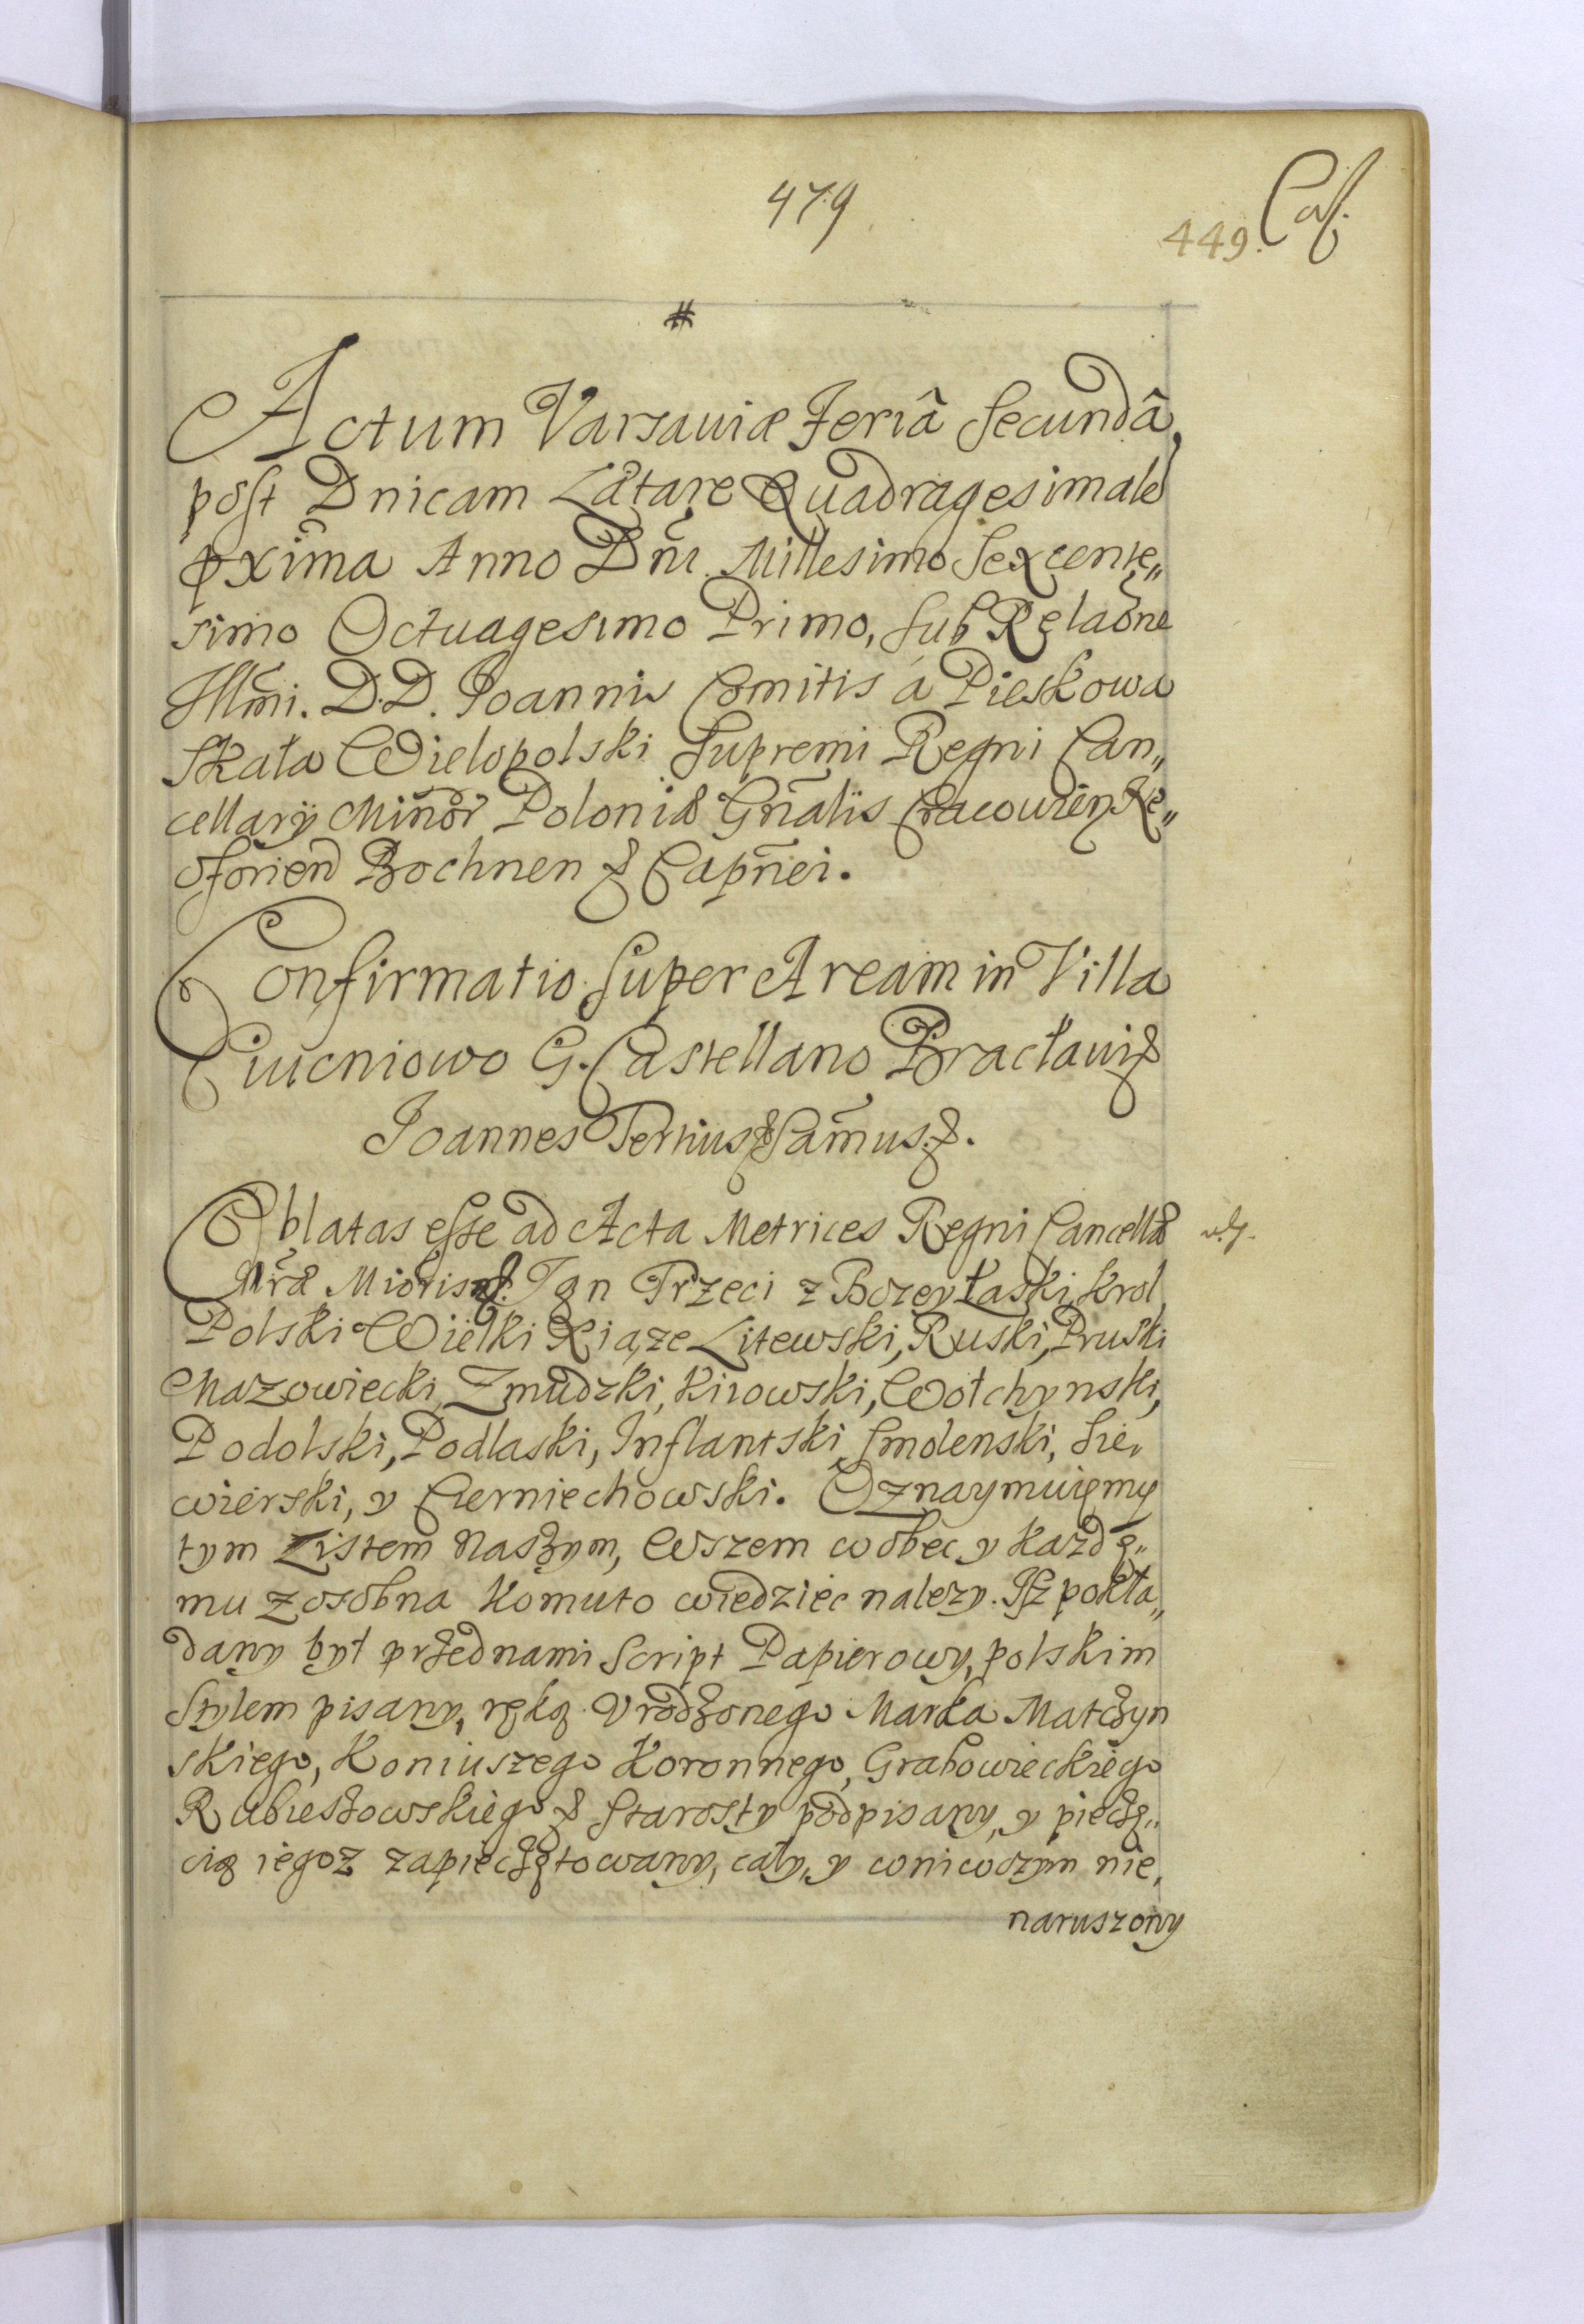 479
449.
#
Actum Varsaviæ Feriâ Secundâ
post Dnicam Lætare Quadragesimale
pxima Anno Dñi Millesimo Sexcente„
simo Octuagesimo Primo, sub Relaōne
Illm̄i. D. D. Joannis Comitis á Pieskowa
Skała Wielopolski Supremi Regni Can„
cellarÿ Minor Poloniæ Gn̄alis Cracouien
Bochnen & Capn̄ei.
Confirmatio super Aream in Villa
Ciucniowo G. Castellano Bracławi&
Joannes Tertius & Sam̄us. &.
Oblatas esse ad Acta Metrices Regni Cancellæ
Nr̄æ Mioris Jan Trzeci z Bozey Łaski, Krol
Polski Wielki Xiąze Litewski, Ruski, Pruski
Mazowiecki, Zmudzki, Kiiowski, Wołchynski,
Podolski, Podlaski, Inflantski, Smolenski, Sie„
wierski, y Czerniechowski. Oznaymuięmy
tym Listem Naszym, Wszem wobec y kazdę„
mu zosobna komuto wiedziec nalezy. Isz pokła„
dany był przednami Script Papierowy, polskim
Stylem pisany, ręką Vrodzonego Marka Matczyn
skiego, Koniuszego Koronnego, Grabowieckiego
Rubieszowskiego & Starosty podpisany, y pieczę„
cią iegoz zapieczętowany, cały, y wniwczym nie,
naruszony